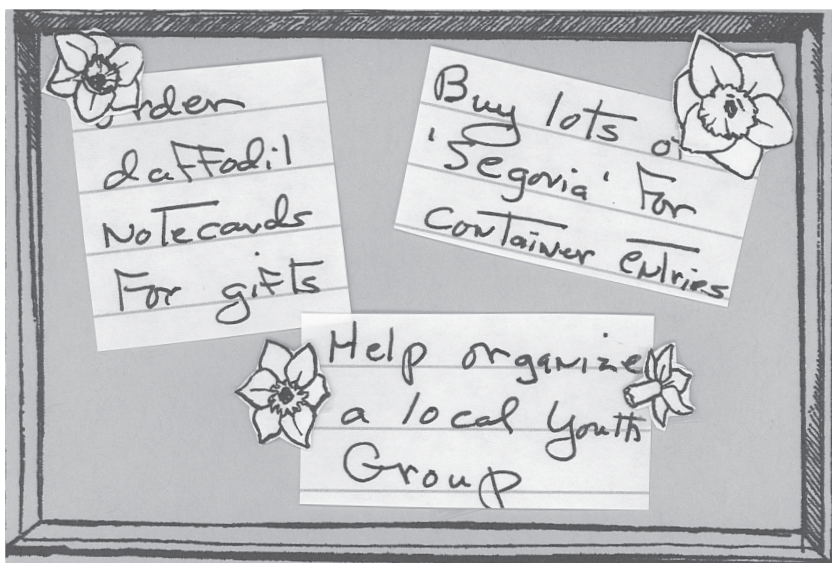 Order
daffodil
Notecards
For gifts
Buy lots of
'Segovia' For
container entries
Help organize
a local Youth
Group